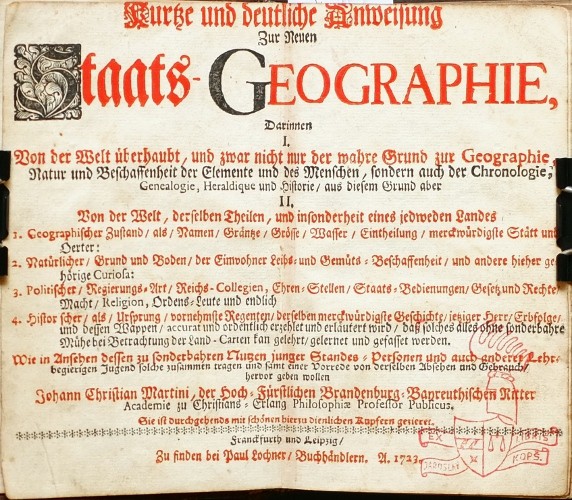 Kurtze und deutliche Anweisung
Zur Neuen
Staats-GEOGRAPHIE,
Darinnen
I.
Von der Welt überhaubt, und zwar nicht nur der wahre Grund zur Geographie,
Natur und Beschaffenheit der Elemente und des Menschen, sondern auch der Chronologie,
Genealogie, Heraldique und Historie, aus diesem Grund aber
II.
Von der Welt, derselben Theilen, und insonderheit eines jedweden Landes
1. Geographischer Zustand, als, Namen, Gräntze, Grösse, Wasser, Eintheilung, merckwürdigste Stätt und
Oerter:
2. Natürlicher, Grund und Boden, der Einwohner Leibs- und Gemüts-Beschaffenheit, und andere hieher ge-
hörige Curiosa:
3. Politischer, Regierungs-Art, Reichs-Collegien, Ehren-Stellen, Staats-Bedienungen, Gesetz und Rechte
Macht, Religion, Ordens-Leute und endlich
4. Historischer, als, Ursprung, vornehmste Regenten, derselben merckwürdigste Geschichte, jetziger Herr, Erbfolge,
und dessen Wappen, accurat und ordentlich erzehlet und erläutert wird, daß solches alles ohne sonderbahre
Mühe bei Betrachtung der Land-Carten kan gelehrt, gelernet und gefasset werden.
Wie in Ansehen dessen zu sonderbahren Nutzen junger Standes-Personen und auch anderer Lehr-
begierigen Jugend solche zusammen tragen und samt einer Vorrede von derselben Absehen und Gebrauch,
hervor geben wollen
Johann Christian Martini, der Hoch-Fürstlichen Brandenburg-Bayreuthischen Ritter
Academie zu Christians-Erlang Philosophiæ Professor Publicus.
Sie ist durchgehends mit schönen hierzu dienlichen Kupfern gezieret.
Franckfurth und Leipzig,
Zu finden bei Paul Lochner, Buchhändlern. A. 1723.
EX